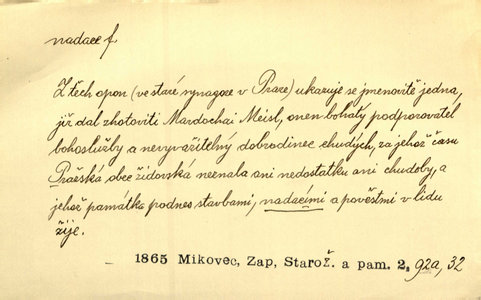 nadace f.
Z těch opon (ve staré synagoze v Praze) ukazuje se jmenovitě jedna,
již dal zhotoviti Mardochai Meisl, onen bohatý podporovatel
bohoslužby a nevyrážitelný dobrodinec chudých, za jehož času
Pražská obec židovská neznala ani nedostatku ani chudoby, a
jehož památka podnes stavbami, nadacími a pověstmi v lidu
žije.
1865 Mikovec, Zap, Starož. a pam. 2, 92a, 32